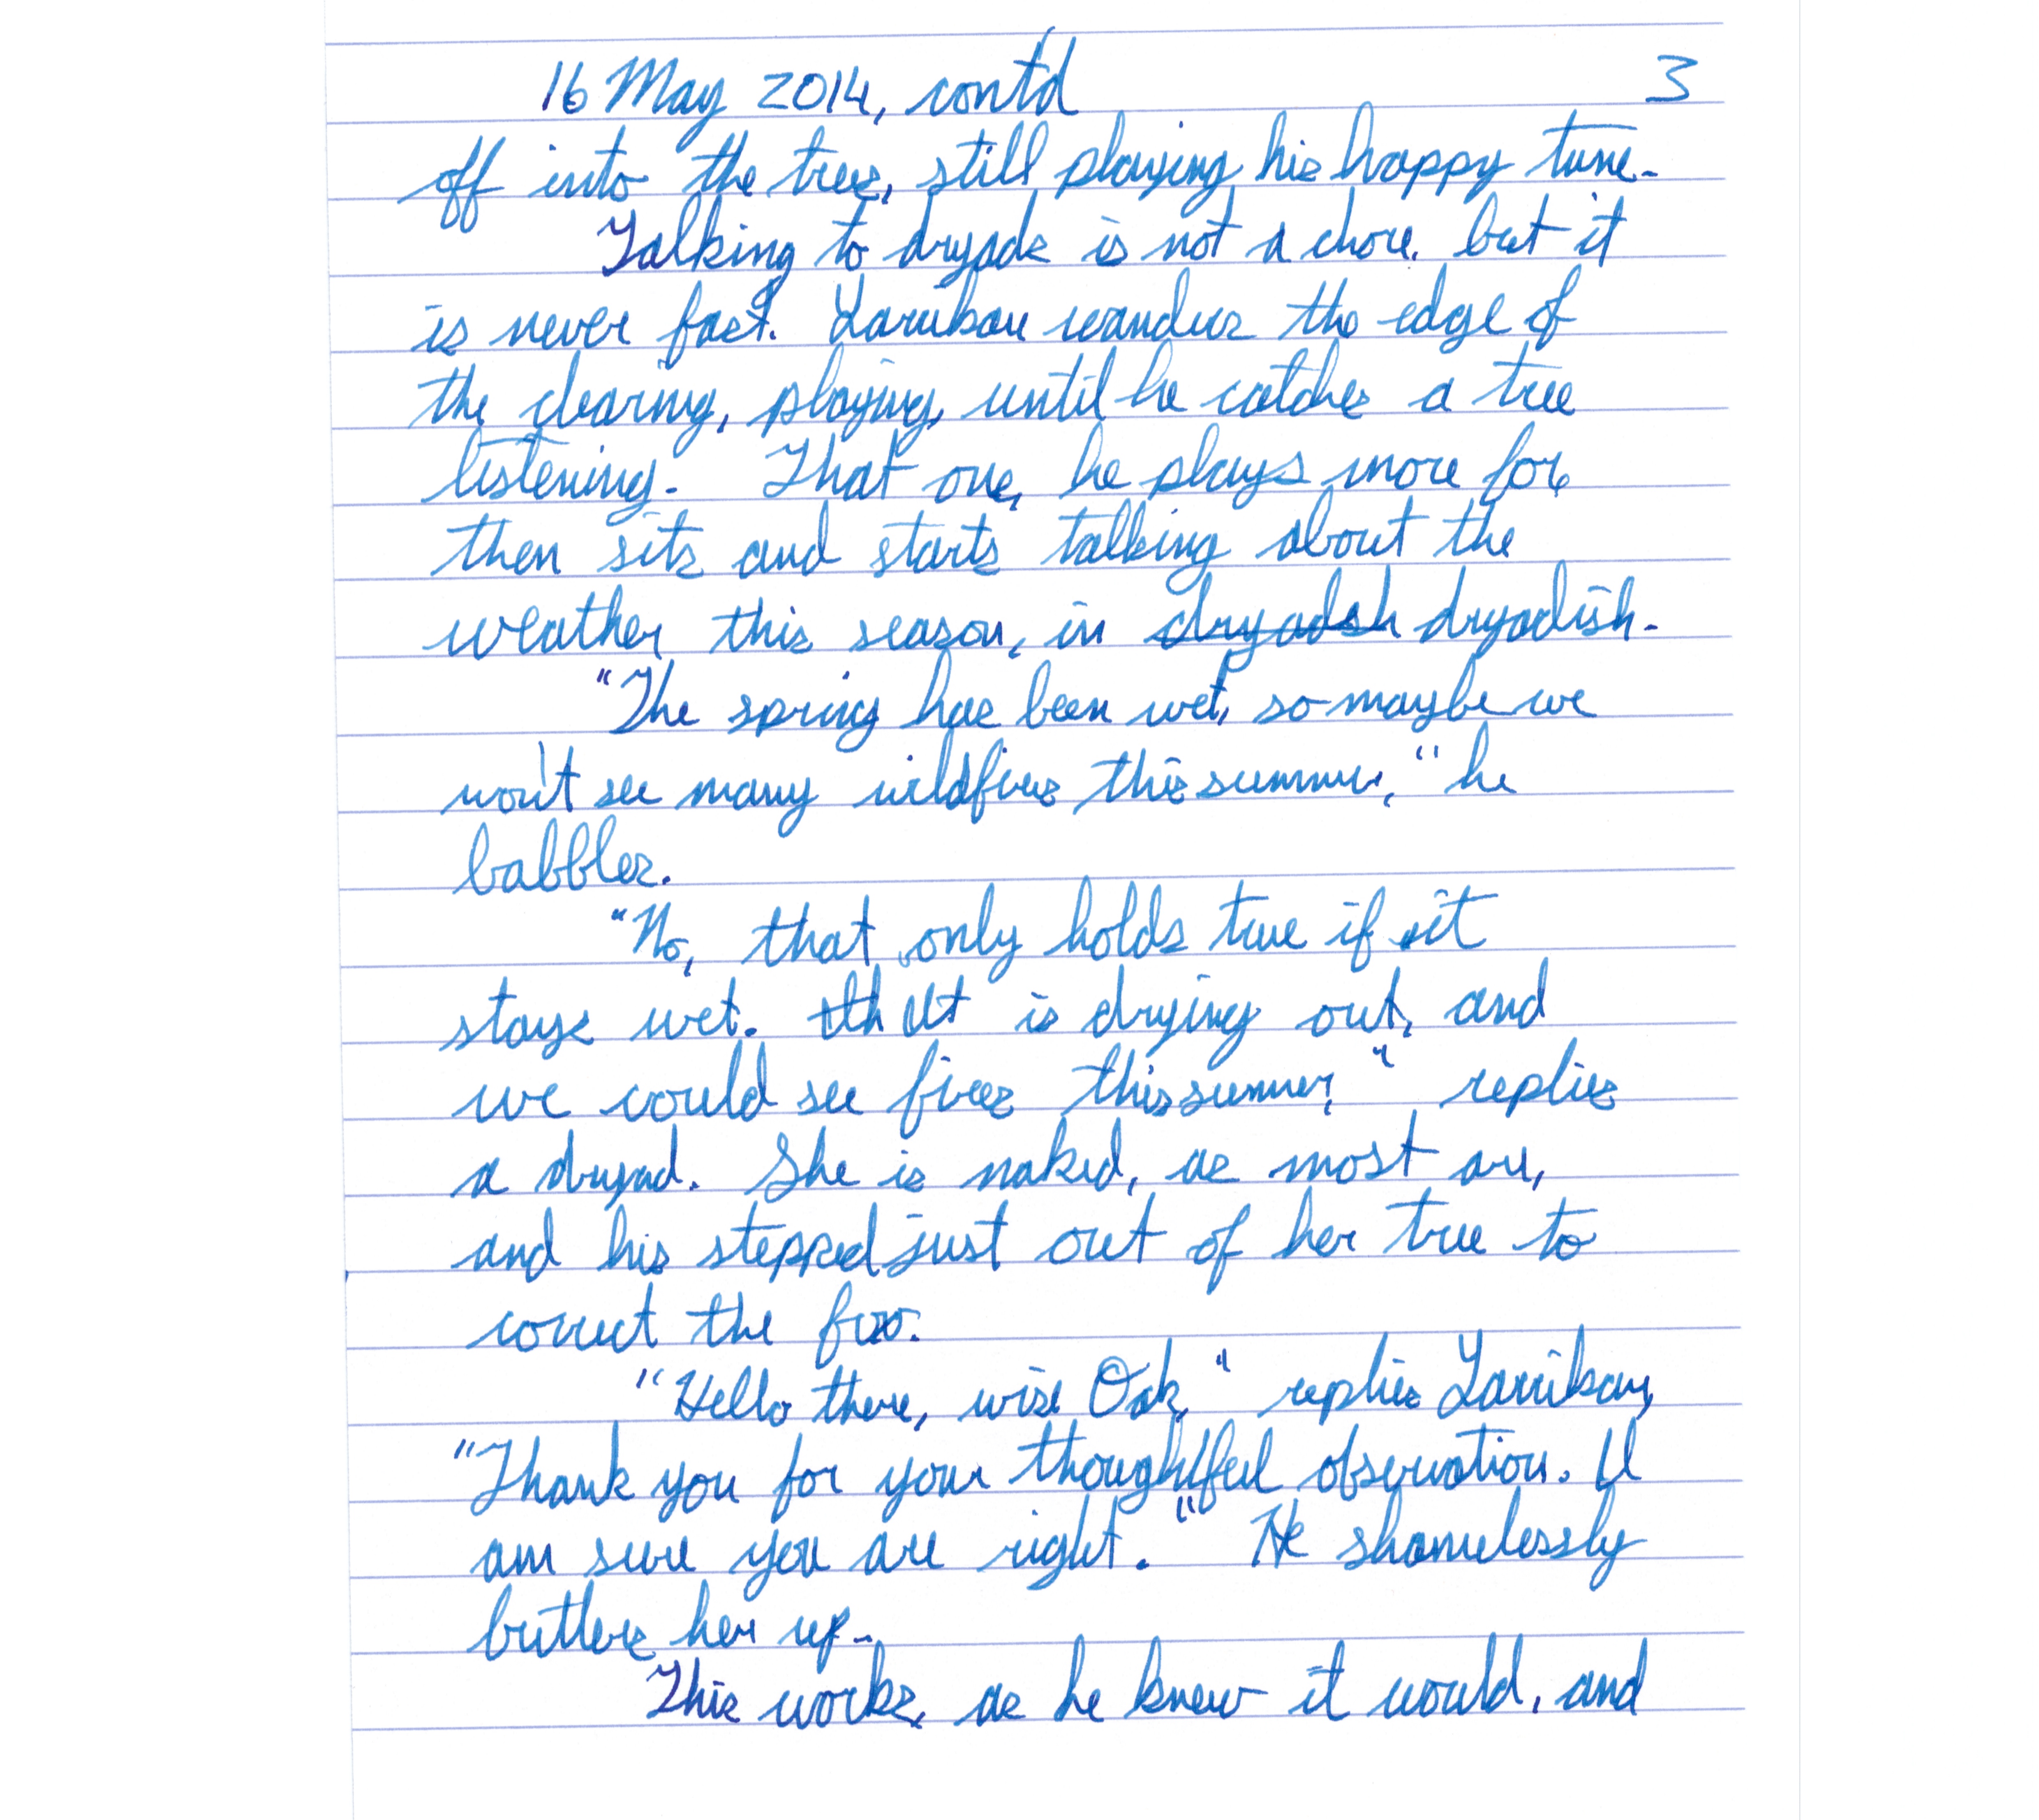 16 May 2014, cont'd 3
off into the trees, still playing his happy tune.
Talking to dryads is not a chore, but it
is never fast. Larribau wanders the edge of
the clearing, playing, until he catches a tree
listening. That one, he plays more for,
then sits and starts talking about the
weather this season, in dryadsh dryadish.
"The spring has been wet, so maybe we
won't see many wildfires this summer," he
babbles.
"No, that only holds true if it
stays wet. th It is drying out, and
we could see fires this summer," replies
a dryad. She is naked, as most are,
and his stepped just out of her tree to
correct the fox.
"Hello there, wise Oak," replies
"Thank you for your thoughtful observation. I
am sure you are right." He shamelessly
butters her up.
This works, as he knew it would, and